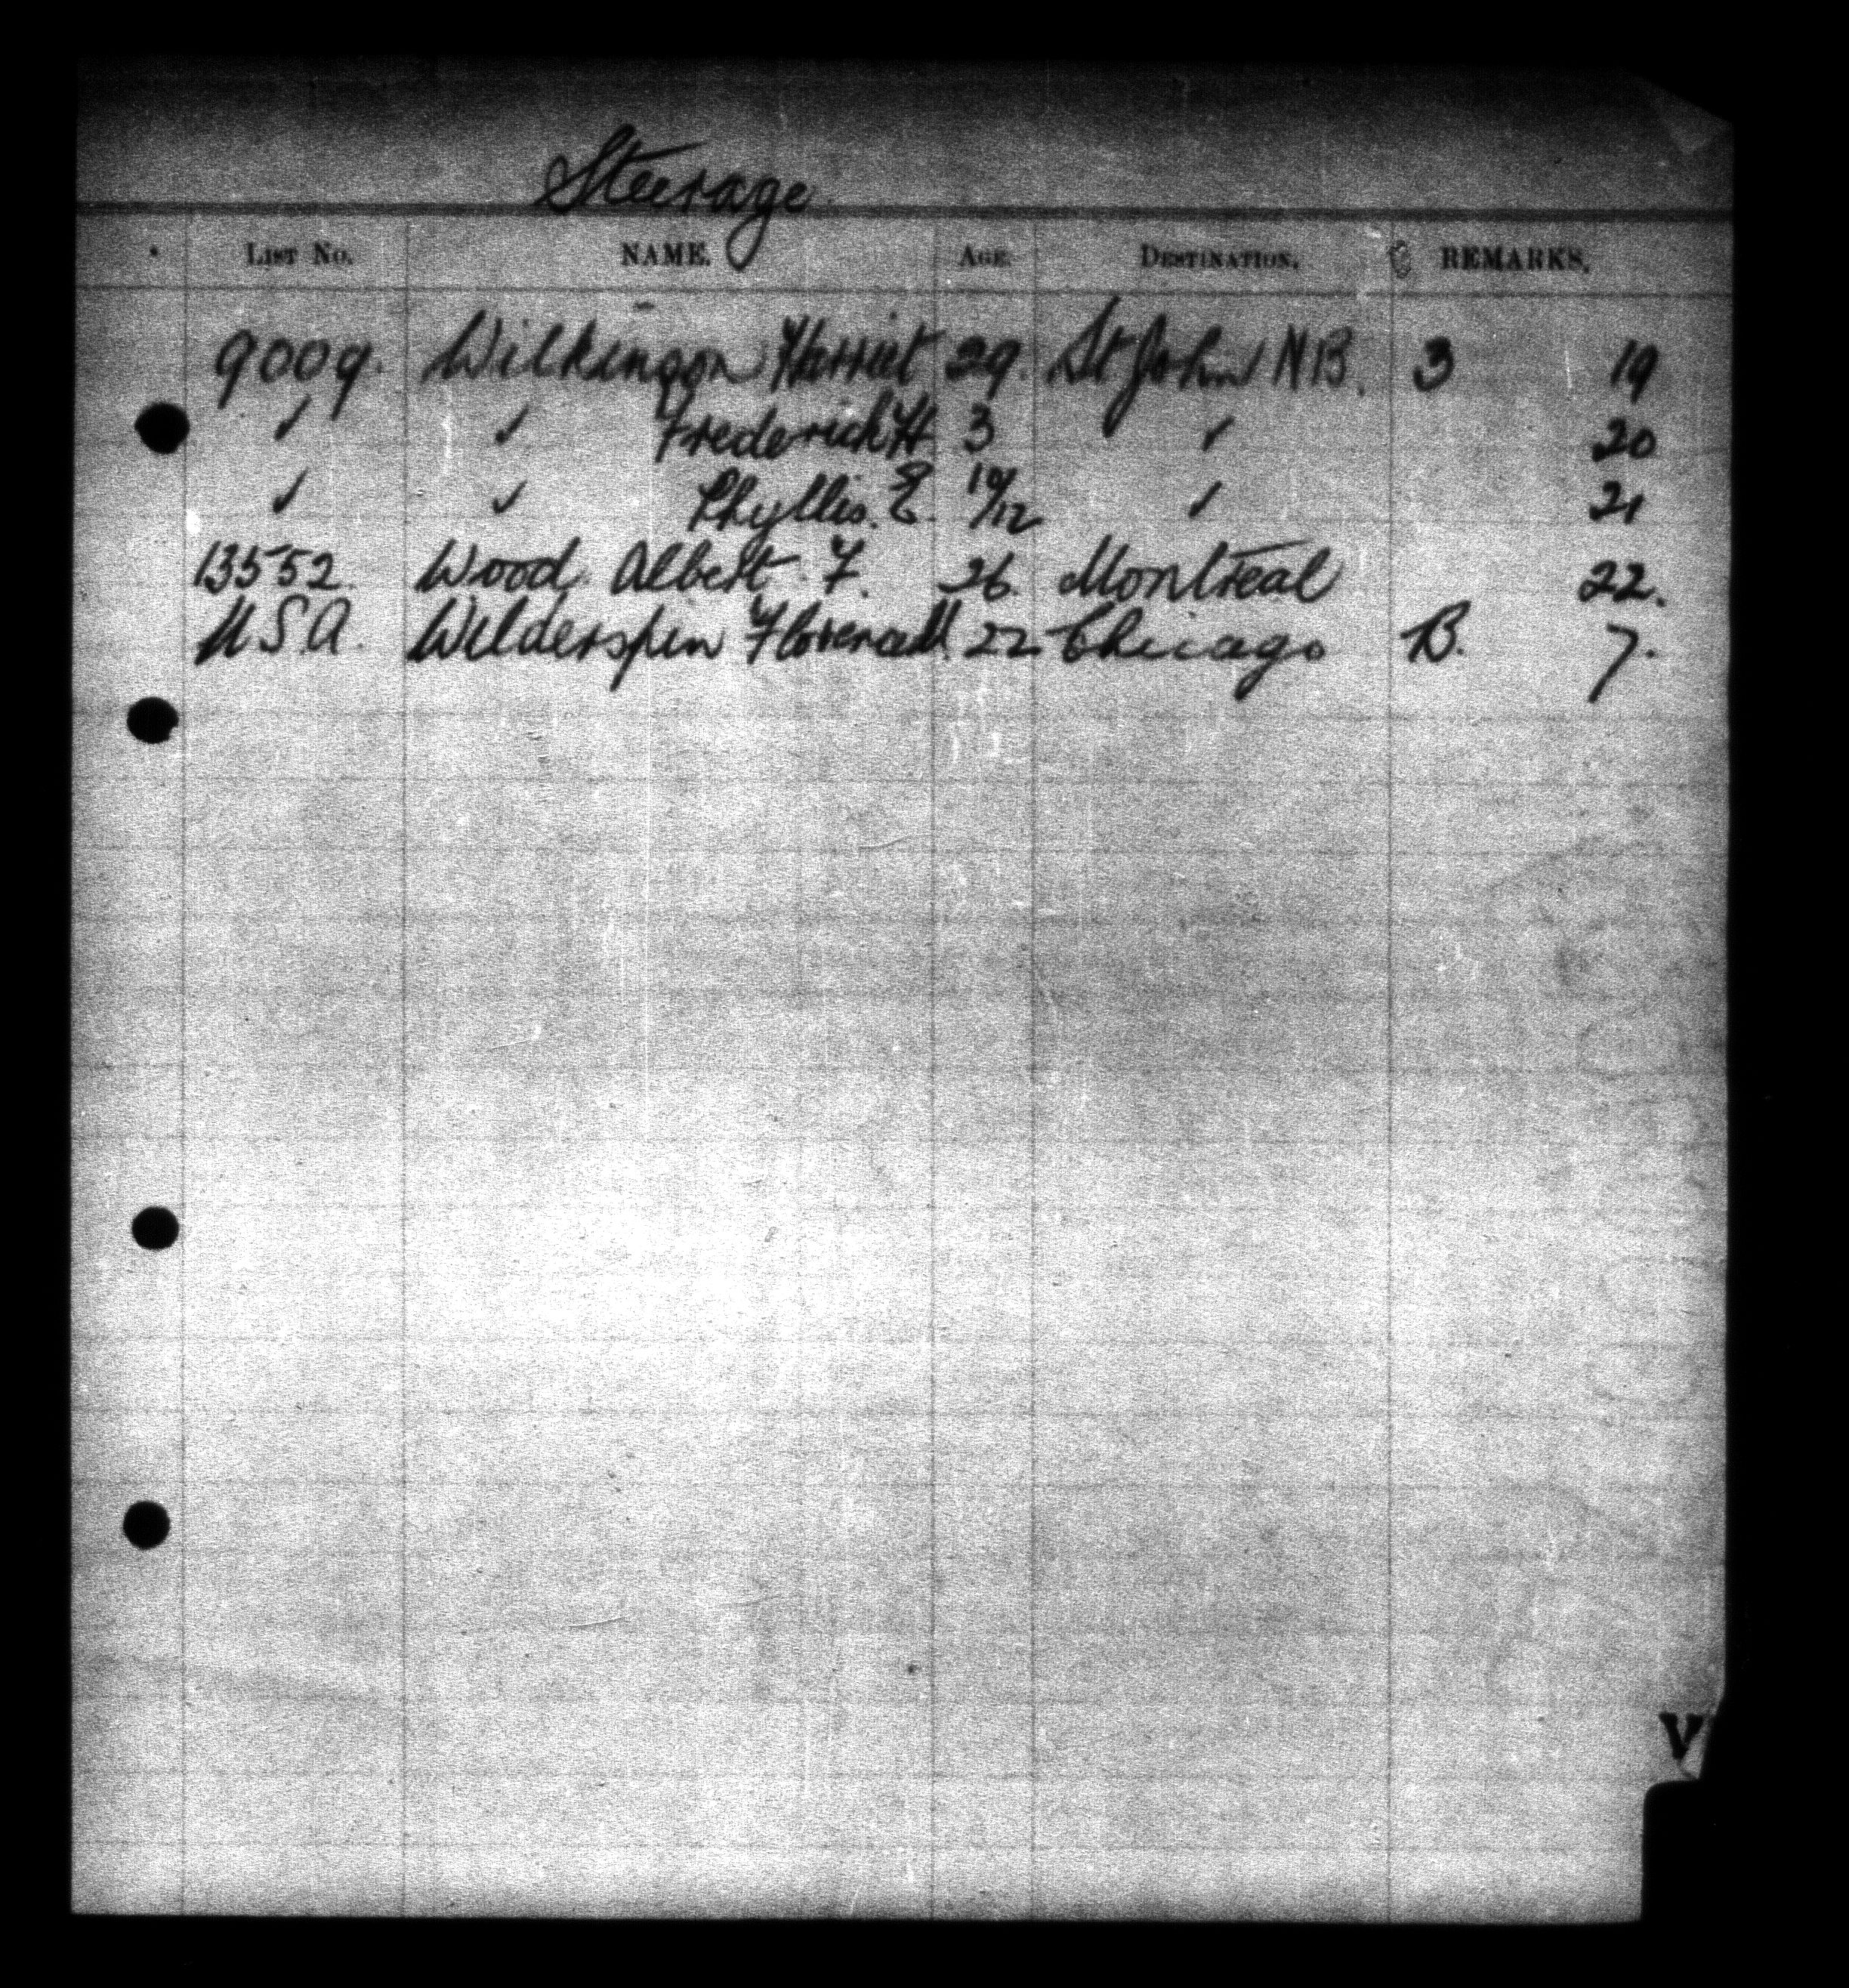 Steerage
LIST NO. NAME. AGE. DESTINATION. REMARKS.
9009. Wilkinson Harriet 29. St John N.B. 3 19
✓ ✓ Frederick H. 3 ✓ 20
✓ ✓ Phyllis. E. 10/12 ✓ 21
13552. Wood. Albert. F. 26. Montreal 22.
U.S.A. Wilderspin Florence M. 22 Chicago B. 7.
V